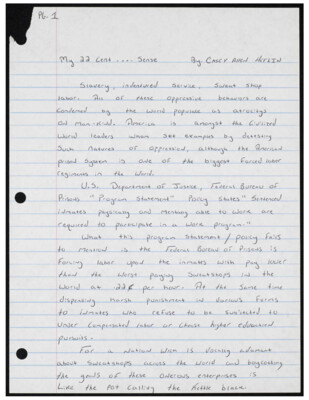 PG. 1
My 22 Cent .... Sense By: Casey Aren
Slavery, indentured service, sweat shop
labor. All of these oppressive behaviors are
condemed by the world populace as atrocitys
on man-kind. America is amongst the civilized
world leaders whom set example by detesting
such natures of oppression, although the American
prison system is one of the biggest forced labor
regiments in the world.
U.S. Department of Justice, Federal Bureau of
Prisons "Program Statement" Policy states "Sentenced
inmates physically and mentally able to work are
required to participate in a work program."
What this program statement/policy fails
to mention is the Federal Bureau of Prisons is
forcing labor upon the inmates with pay lower
than the worst paying sweatshops in the
world at 22¢ per hour. At the same time
dispensing harsh punishment in various forms
to inmates who refuse to be subjected to
under compensated labor or chose higher education
pursuits.
For a nation whom is vocally adamant
about sweatshops across the world and boycotting
the goods of these onerous enterprises is
like the pot calling the kettle black.